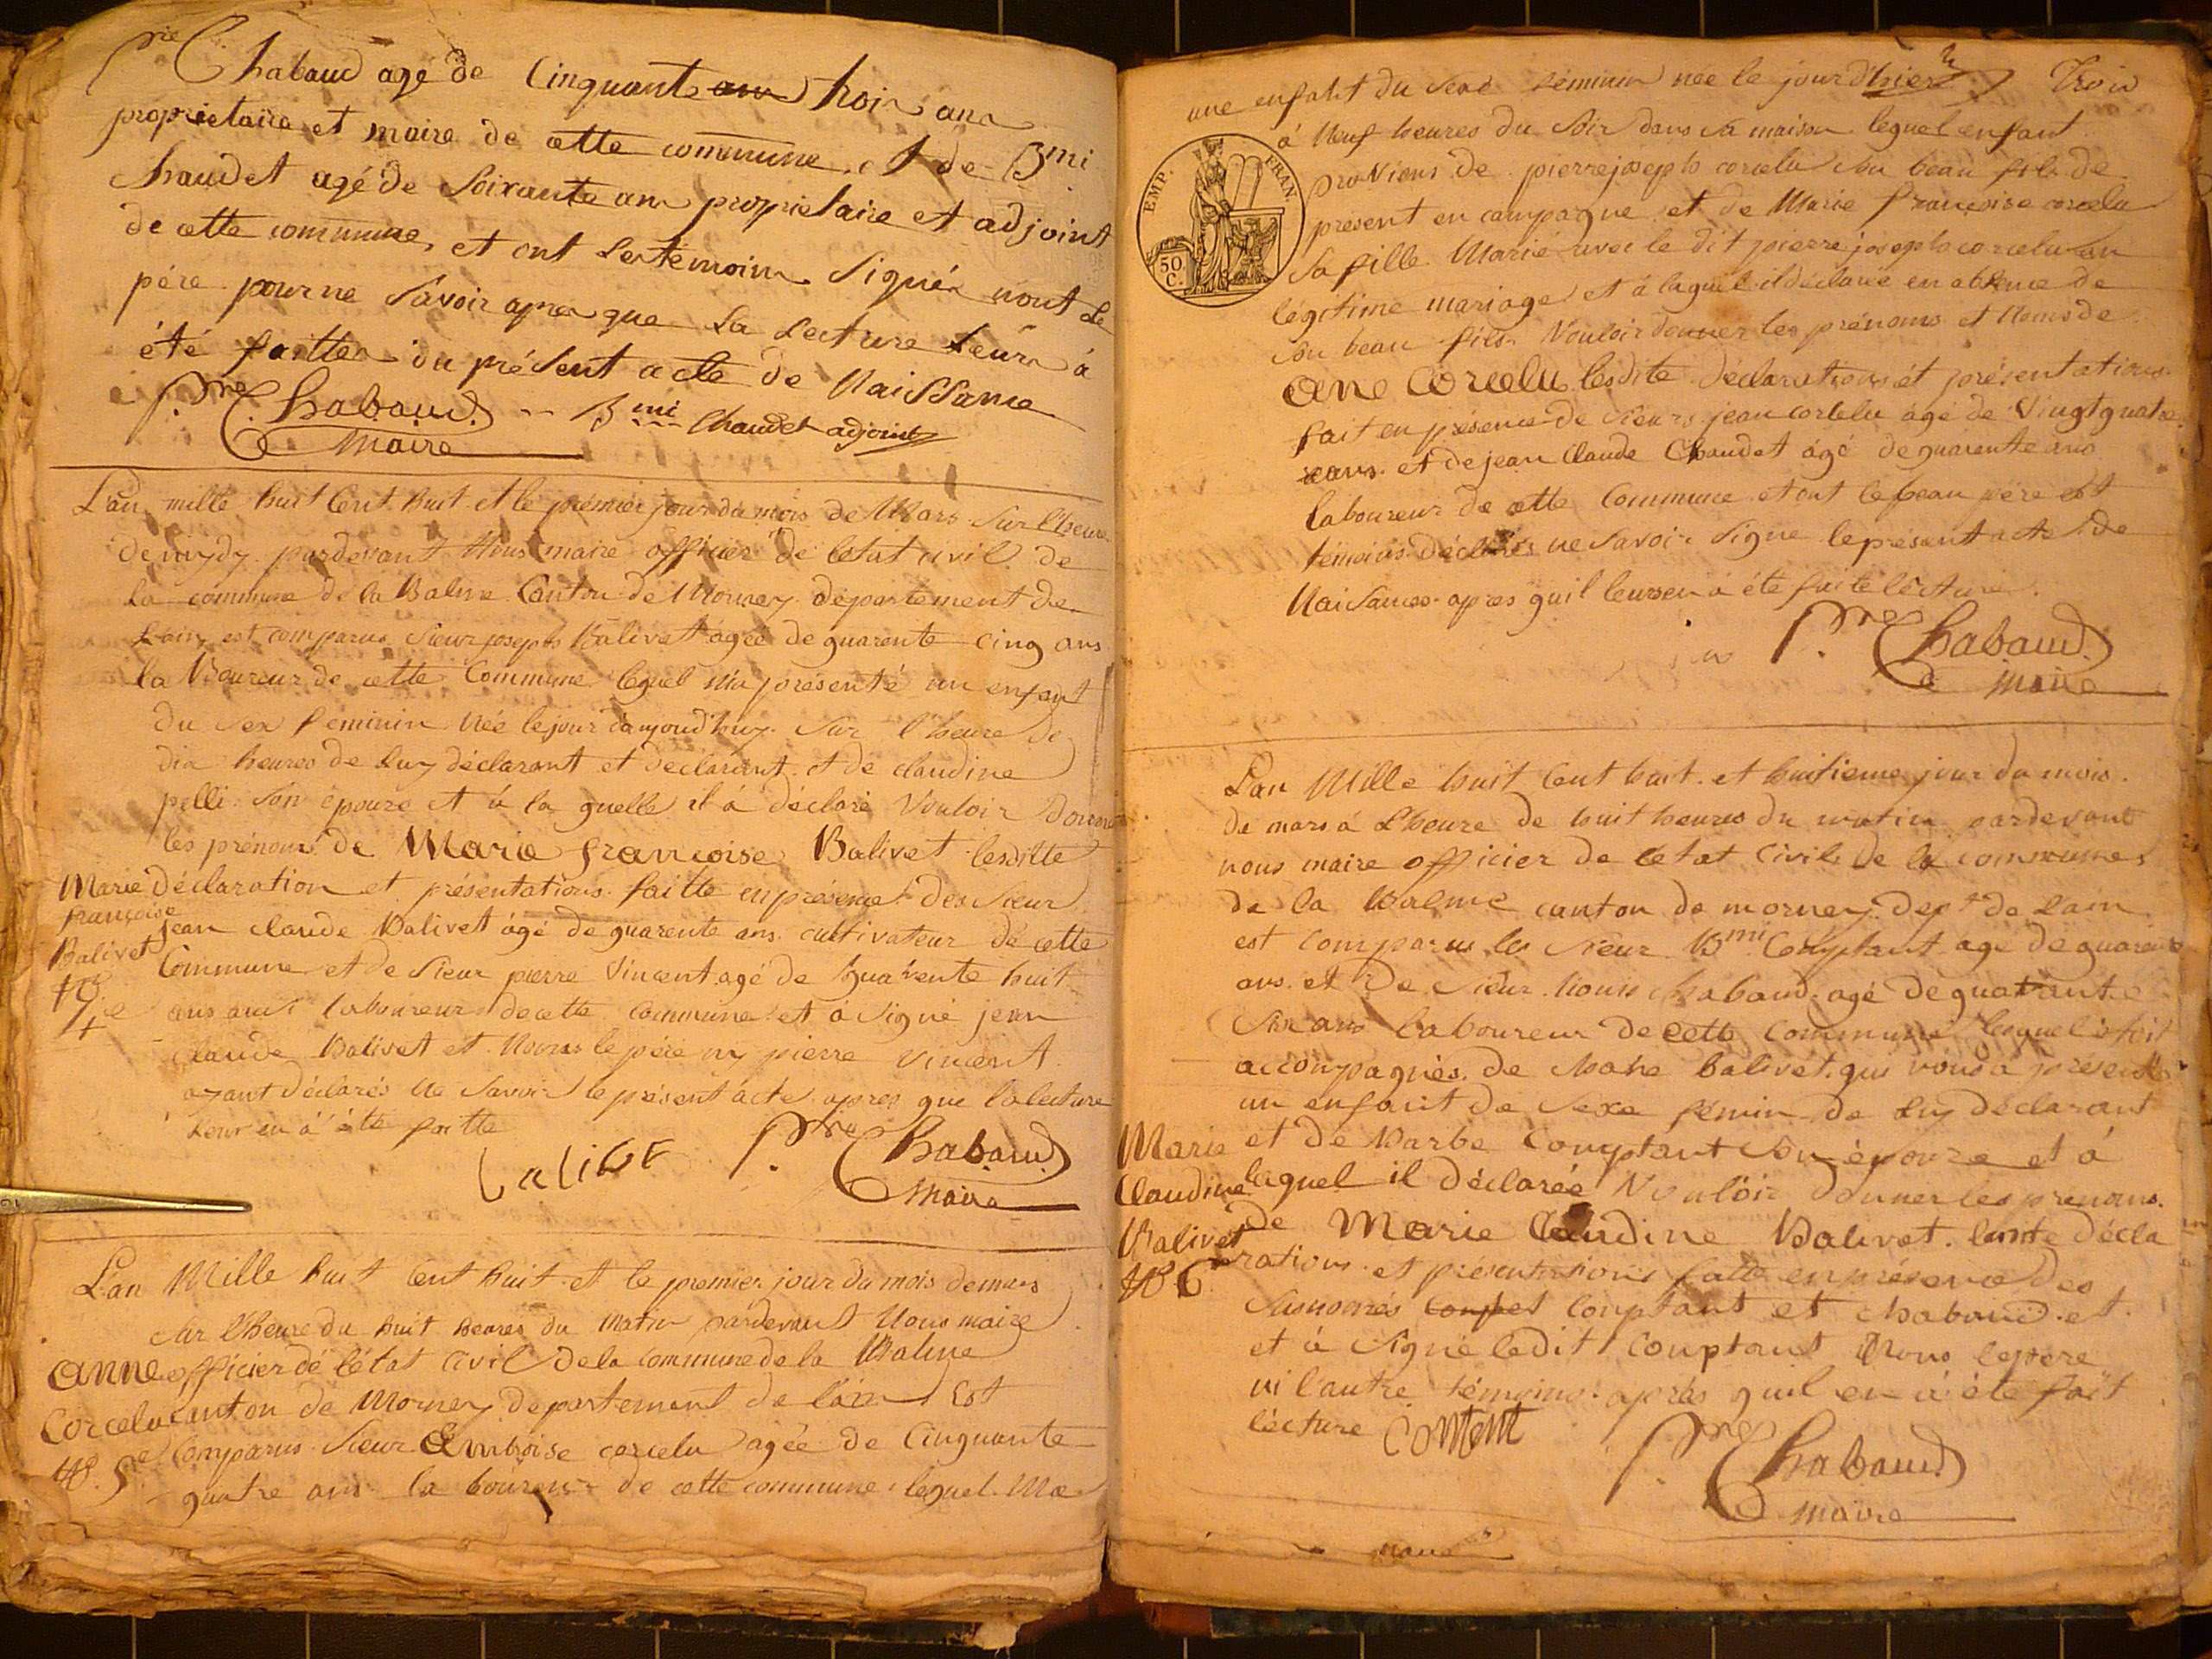 Pre Chabaud agé de Cinquante trois ans
proprietaire et maire de cette commune, et de Bmi
Chaudet agé de Soixante ans proprietaire et adjoint
de cette commune, et ont les temoins Signés nont Le
pére pour ne Sávoir apres que La Lecture Leurs à
été faitte du présent acte de Naissance
P.re Chabaud -- Bmi Chaudet adjoint
Maire
L'an mille huit Cent huit et le prémier jour du mois de Mars Sur l'heure
de mydy pardevant Nous maire officier de létat civil de
La commune de la Balme Canton de Mornay département de
Lain est comparus Sieur joseph Balivet agée de quarente cinq ans
la Boureur de cette Commune lequel m'a présenté un enfant
du Sex féminin née le jour daujoud'huy Sur l'heure de
dix heures de Luy déclarant et declarant et de claudine
pelli Son épouze et à la quelle il á déclaré Vouloir Donner
les prénoms de Marie françoise Balivet lesditte
Marie déclaration et présentations faitte en présence des Sieur
françoise jean claude Balivet ágé de quarente ans cultivateur de cette
Balivet Commune et de Sieur pierre Vincent agé de quarente huit
ans aussi laboureur de cette commune et á Signé jean
claude Balivet et Nous le pére ny pierre Vincent
ayant déclarés Ne Savoir le présent ácte apres que la lecture
Leur en á été faitte
baliVet P.re Chabaud
Maire
L'an Mille huit Cent huit et le premier jour du mois de mars
Sur l'heure du huit heures du Matin pardevant Nous maire
Anne officier dé létat Civil de la Commune de la Balme
Corcelu canton de Mornay departement de l'ain Est
No. 5e Comparus Sieur Ambroise corcelu agée de Cinquante
quatre ans la boureur de cette commune lequel Ma
une enfant du Sexe féminin née le jour d'hier Trois
á Neuf heures du Soir dans Sa maison lequel enfant
EMP. FRAN.
50 C.
proviens de pierre joseph corcelu Son beau fils de
présent en campagne et de Marie françoise corcelu
Sa fille Marié avec le dit pierre joseph corcelu en
légitime mariage et á laquel il déclaré en absence de
Son beau fils Vouloir donner les prénoms et Noms de
Ane Corcelu lesdite déclarations ét présentations
fait en présence de Sieurs jean corcelu ágé de Vingt quatre
ans et de jean Claude Chaudet ágé de quarente ans
laboureur de cette Commune et ont le beau pére et
témoins déclarés ne Savoir Signe le présent acte de
Naisances apres quil leursen á éte faite lécture
P.re Chabaud
Maire
L'an Mille huit Cent huit et huitieme jour du mois
de mars á L'heure de huit heures du matin pardevant
nous maire officier de létat Civil de la commune
de la Balme canton de mornay dept de Lain
est comparus les Sieur Bmi Comptant agé de quarente
ans et de Sieur Louis Chabaud agé de quarante
Six ans laboureur de cette Commune lequel étoit
accompagnés de balivét qui nous á présenté
un enfant de Sexe fémin de Luy déclarant
Marie et de Barbe Comptant Son épouze et á
Claudine laquel il déclarée Vouloir donner les prenoms
Balivet de Marie Claudine Balivet décla
No 6 rations et présentations faitte en présence des
Susnomés Comptant et Chabaud et
et á Signé ledit Comptant Nous le pére
ni l'autre témoins aprés quil en á été fait
lécture Content
P.re Chabaud
maire